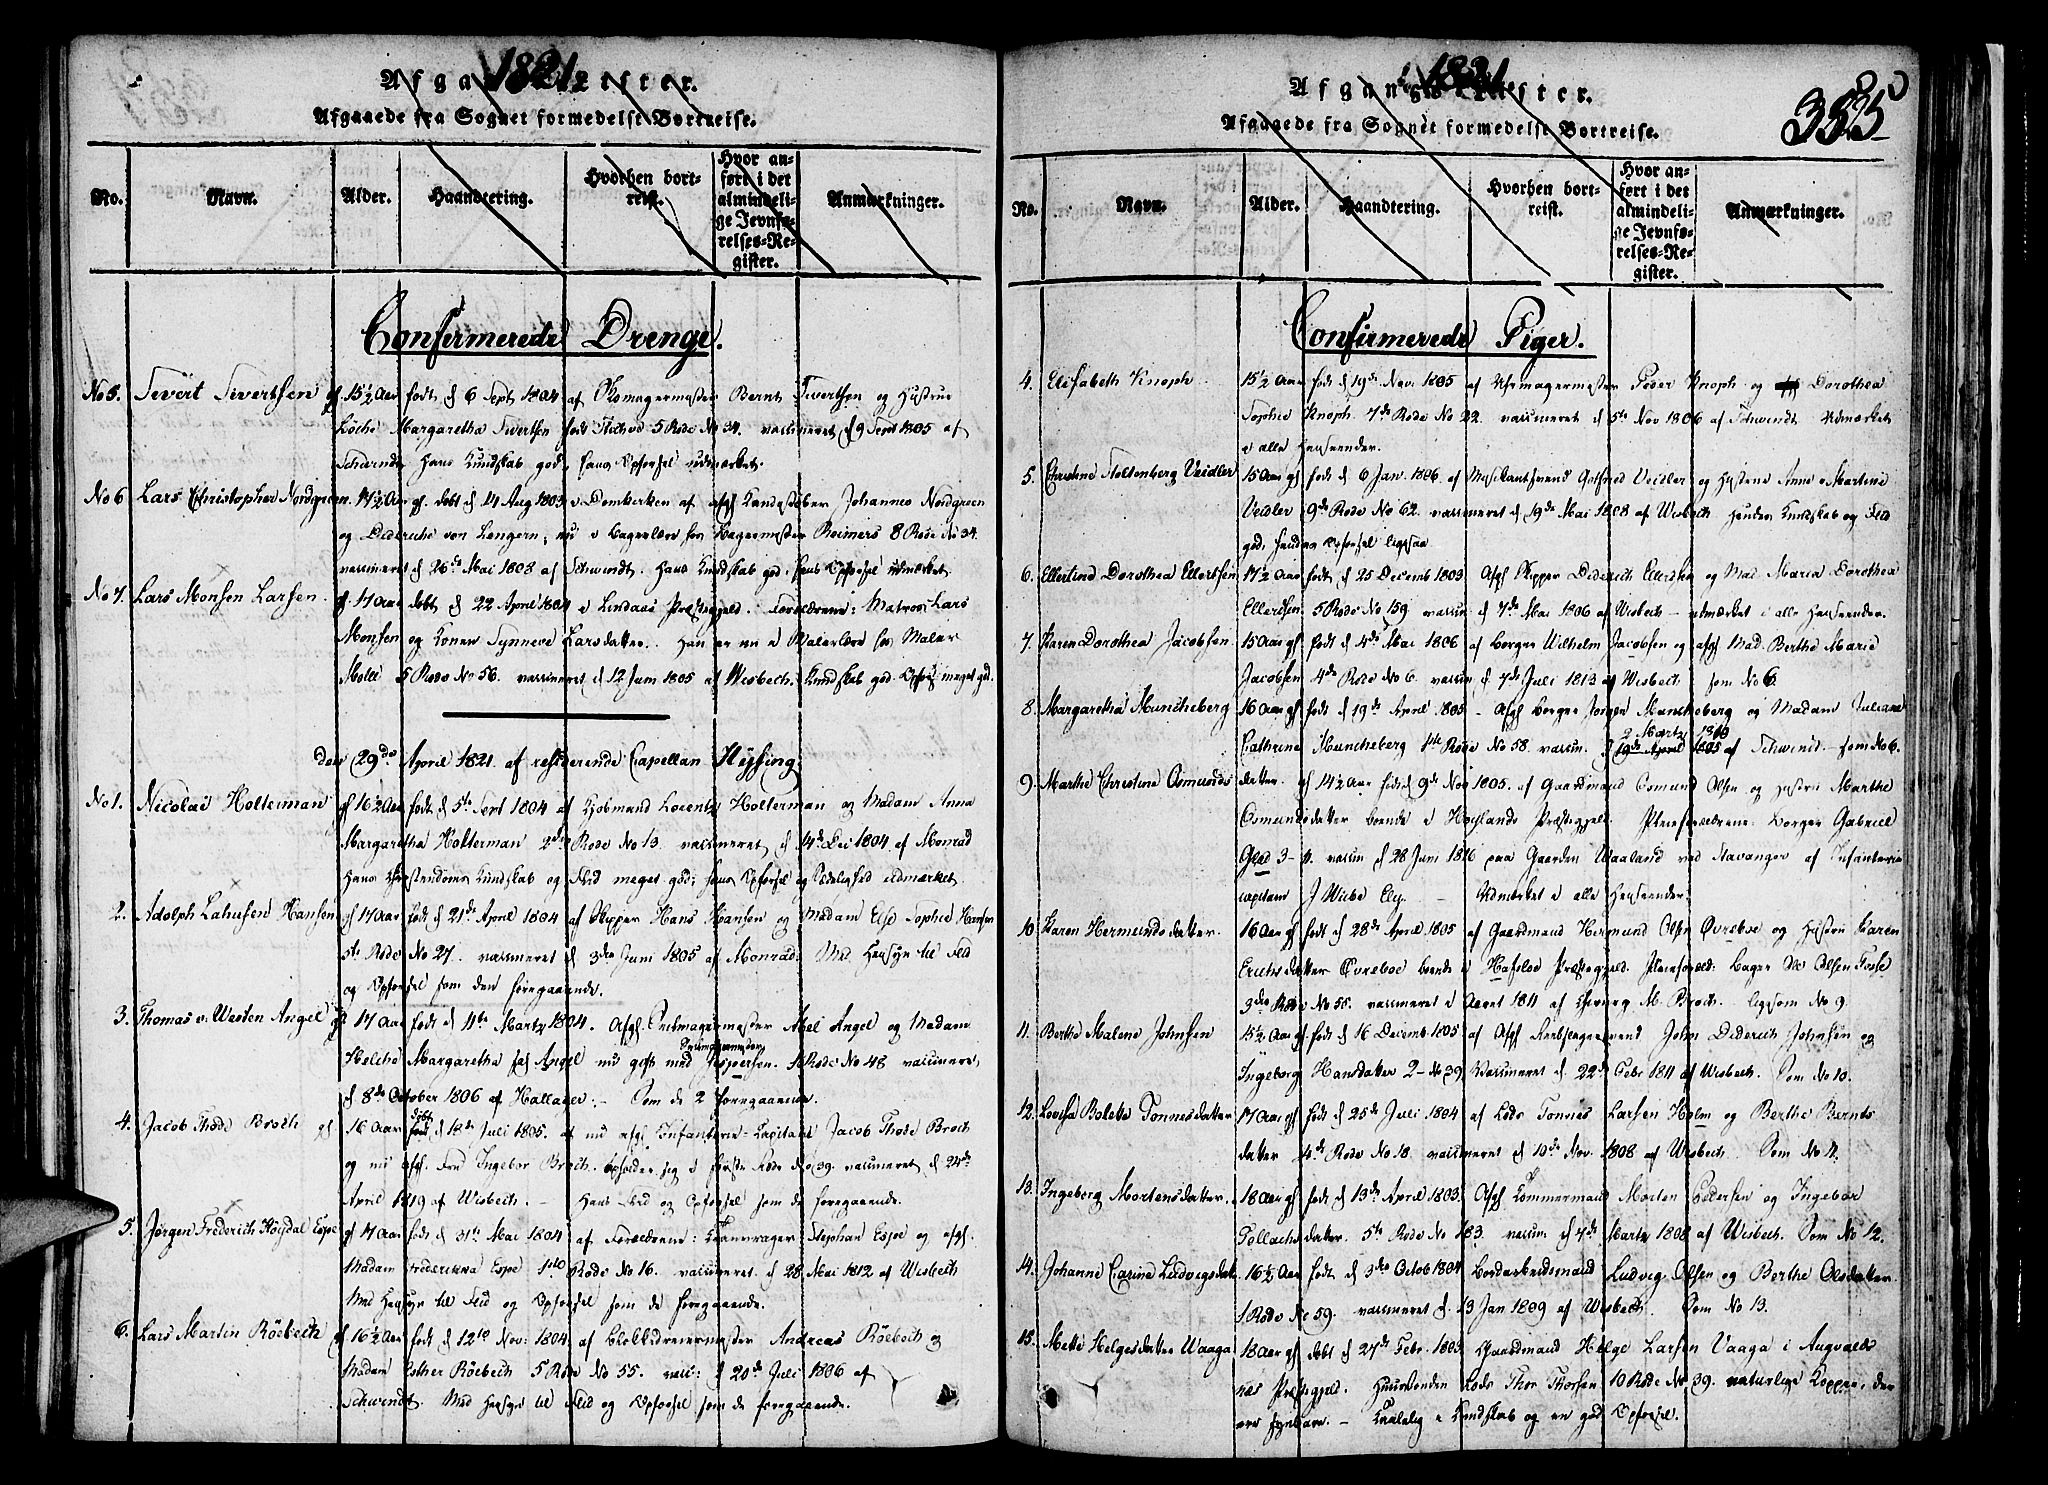 1821
Afgangs-Lister.
Afgaaede fra Sognet formedelst Bortreise.
No.
Navn.
Alder.
Haandtering.
Hvorhen bort-
reist.
Hvor an-
ført i det
almindeli-
ge Jevnfø-
relses-Re-
gister.
Anmærkninger.
Confirmerede Drenge.
No 5. Sivert Sivertsen gl 15½ Aar født d 6 Sept 1804 af Skomagermester Bernt Sivertsen og Hustrue
Margaretha Sivertsen 5 Rode No 34. vaccineret d 9 Sept 1805 af
Schwindt. Hans Kundskab god, hans Opførsel udmærket.
No 6 Lars Christopher Nordgreen 17½ Aar gl. døbt d 14 Aug 1803 i Domkerken af afg Johannes Nordgreen
og Diderche von Lengern, nu i Bagerlære hos Bagermester Reimers 8 Rode No 34.
vaccineret d 26de Mai 1808 af Schwindt. Hans Kundskab god, hans Opførsel udmærket
No 7. Lars Monsen Larsen. gl 17 Aar døbt d 22 April 1804 i Lindaas Præstegjeld. Forældrene: Matros Lars
Monsen og Konen Synneve Larsdatter. Han er nu i Malerlære hos Maler
5 Rode No 56. vaccineret d 12 Juni 1805 af Wisbech. Kundskab god Opførs meget god.
den 29de April 1821 af residerende Capellan Heyfing
No 1. Nicolai Holterman gl 16½ Aar født d 5te Sept 1804 af Kjøbmand Lorentz Holterman og Madam Anna
Margaretha Holterman 2den Rode No 13. vaccineret d 4de Dec 1804 af Monrad
Hans Christendoms Kundskab og Flid meget god; hans Opførsel og Sædelighed udmærket
2. Adolph Lahusen Hansen gl 17 Aar født d 21de April 1804 af Skipper Hans Hansen og Madam Else Sophie Hansen
5te Rode No 27. vaccineret d 3die Juni 1805 af Monrad. Med Hensyn til Flid
og Opførsel som den foregaaende.
3. Thomas v. Westen Angel gl 17 Aar født d 11te Martz 1804. Afg. Abel Angel og Madam
Margaretha Angel nu gift med Jespersen. Rode No 48 vaccineret
d 8de October 1806 af Hallager. – Som de 2 foregaaende.
4. Jacob Thode Broch gl 16 Aar døbt d 18de Juli 1805. af nu afg. Infanterie-Capitain Jacob Thode Broch
og nu afg. Fru Ingebor Broch. opholder sig i første Rode No 39. vaccineret d 24de
April 1819 af Wisbech. – Hans Flid og Opførsel som de foregaaende.
5. Jørgen Frederich Høysdal Espe gl 17 Aar født d 31te Mai 1804 af Forældrene: Stephan Espe og afg.
Madam Frederikka Espe 1ste Rode No 16. vaccineret d 28 Mai 1812 af Wisbech
Med Hensyn til Flid og Opførsel som de foregaaende.
6. Lars Martin Röebech gl 16½ Aar født d 12te Nov: 1804 af Blokkedreiermester Andreas Röebech og
Madam Esther Röebech 5 Rode No 55. vacc: d 20de Juli 1806 af
Schwindt. Med Hensyn til Flid og Opførsel som de foregaaende.
1821
Afgangs-Lister.
Afgaaede fra Sognet formedelst Bortreise.
No.
Navn.
Alder.
Haandtering.
Hvorhen bort-
reist.
Hvor an-
ført i det
almindeli-
ge Jevnfø-
relses-Re-
gister.
Anmærkninger.
Confirmerede Piger.
4. Elisabeth Knoph 15½ Aar født d 19de Nov. 1805 af Uhrmagermester Peder Knoph og Dorothea
Sophie Knoph. 7de Rode No 22. vaccineret d 5te Nov 1806 af Schwindt Udmærket
i alle Henseender.
5. Christine Stoltenberg Veidler 15 Aar gl født d 6 Jan. 1806 af Musikantsvend Gotfried Veidler og Hustrue Anne Martine
Veidler 9de Rode No 62. vaccineret d 19de Mai 1808 af Wisbech Hendes Kundskab og Flid
god, hendes Opførsel ligesaa
6. Ellertine Dorothea Ellertsen 17½ Aar født d 25 Decemb 1803 Afg Skipper Diderich Ellertsen og Mad. Maria Dorothea
Ellertsen 5 Rode No 159 vaccin. d 7de Mai 1806 af Wisbech – udmærket i alle Henseender.
7. Karen Dorothea Jacobsen 15 Aar gl født d 4de Mai 1806 af Borger Wilhelm Jacobsen og afg Mad. Berthe Marie
Jacobsen 4de Rode No 6. vaccin d 7de Juli 1813 af Wisbech som No 6.
8. Margaretha Muncheberg 16 Aar gl født d 19de April 1805 – Afg Borger Jørgen Muncheberg og Madam Juliane
Cathrine Muncheberg 1ste Rode No 58. vaccin. 2 Martz af Schwindt – som No 6.
9. Marthe Christine Osmundsdatter. gl 14½ Aar født d 9de Nov 1805. af Gaardmand Osmund Olsen og Hustrue Marthe
Osmundsdatter boende i Høylands Præstegjeld. Pleieforældrene: Borger Gabriel
Glad 3– vaccin d 28 Juni 1816 paa Gaarden Waaland ved Stavanger af Infanterie
capitain J Wibe Ely. – Udmærket i alle Henseender.
10. Karen Hermundsdatter. 16 Aar gl født d 28de April 1805 af Gaardmand Hermund Olsen Øvrebøe og Hustrue Karen
Erichsdatter Øvreboe boende i Hafsloe Præstegjeld. Pleieforæld: Bager Ole Olsen Fosse
3die Rode No 55. vaccineret i Aaret 1811 af Chirurg M. Broch. ligesom No 9.
11. Berthe Malene Johnsen 15½ Aar gl født d 16 Decemb 1805 af Afg John Diderich Johnsen og
Ingeborg Hansdatter 2– No 39. Vaccineret d. 22de Febr 1811 af Wisbech. Som No 10.
12. Lovisa Bolette Tonnesdatter 17 Aar gl født d 25de Juli 1804 af Lods Tonnes Larsen Holm og Berthe Bernts
datter 4de Rode No 18. vaccineret d 10de Nov. 1808 af Wisbech. Som No 11.
13. Ingeborg Mortensdatter. 18 Aar gl født d 13de April 1803. Afg Tømmermand Morten Pedersen og Ingebor
datter. 5te Rode No 183. vaccin d 7de Martz 1808 af Wisbech. Som No 12.
14. Johanne Carine Ludvigsdat: 16½ Aar født d 3die Octob 1804 Bordarbeidsmand Ludvig Olsen og Berthe Olsdatter
1 Rode No 59. vaccineret d. 13 Jan 1809 af Wisbech. Som No 13.
15. Mette Helgesdatter Waaga 18 Aar gl døbt d 27de Febr. 1803. Gaardmand Helge Larsen Vaaga i Augvalds
næs Præstgjeld. Huusbonden Lods Thor Thorsen 10 Rode No 39. naturlige Kopper, der
ere synbare. – Taalelig i Kundskab og en god Opførsel.